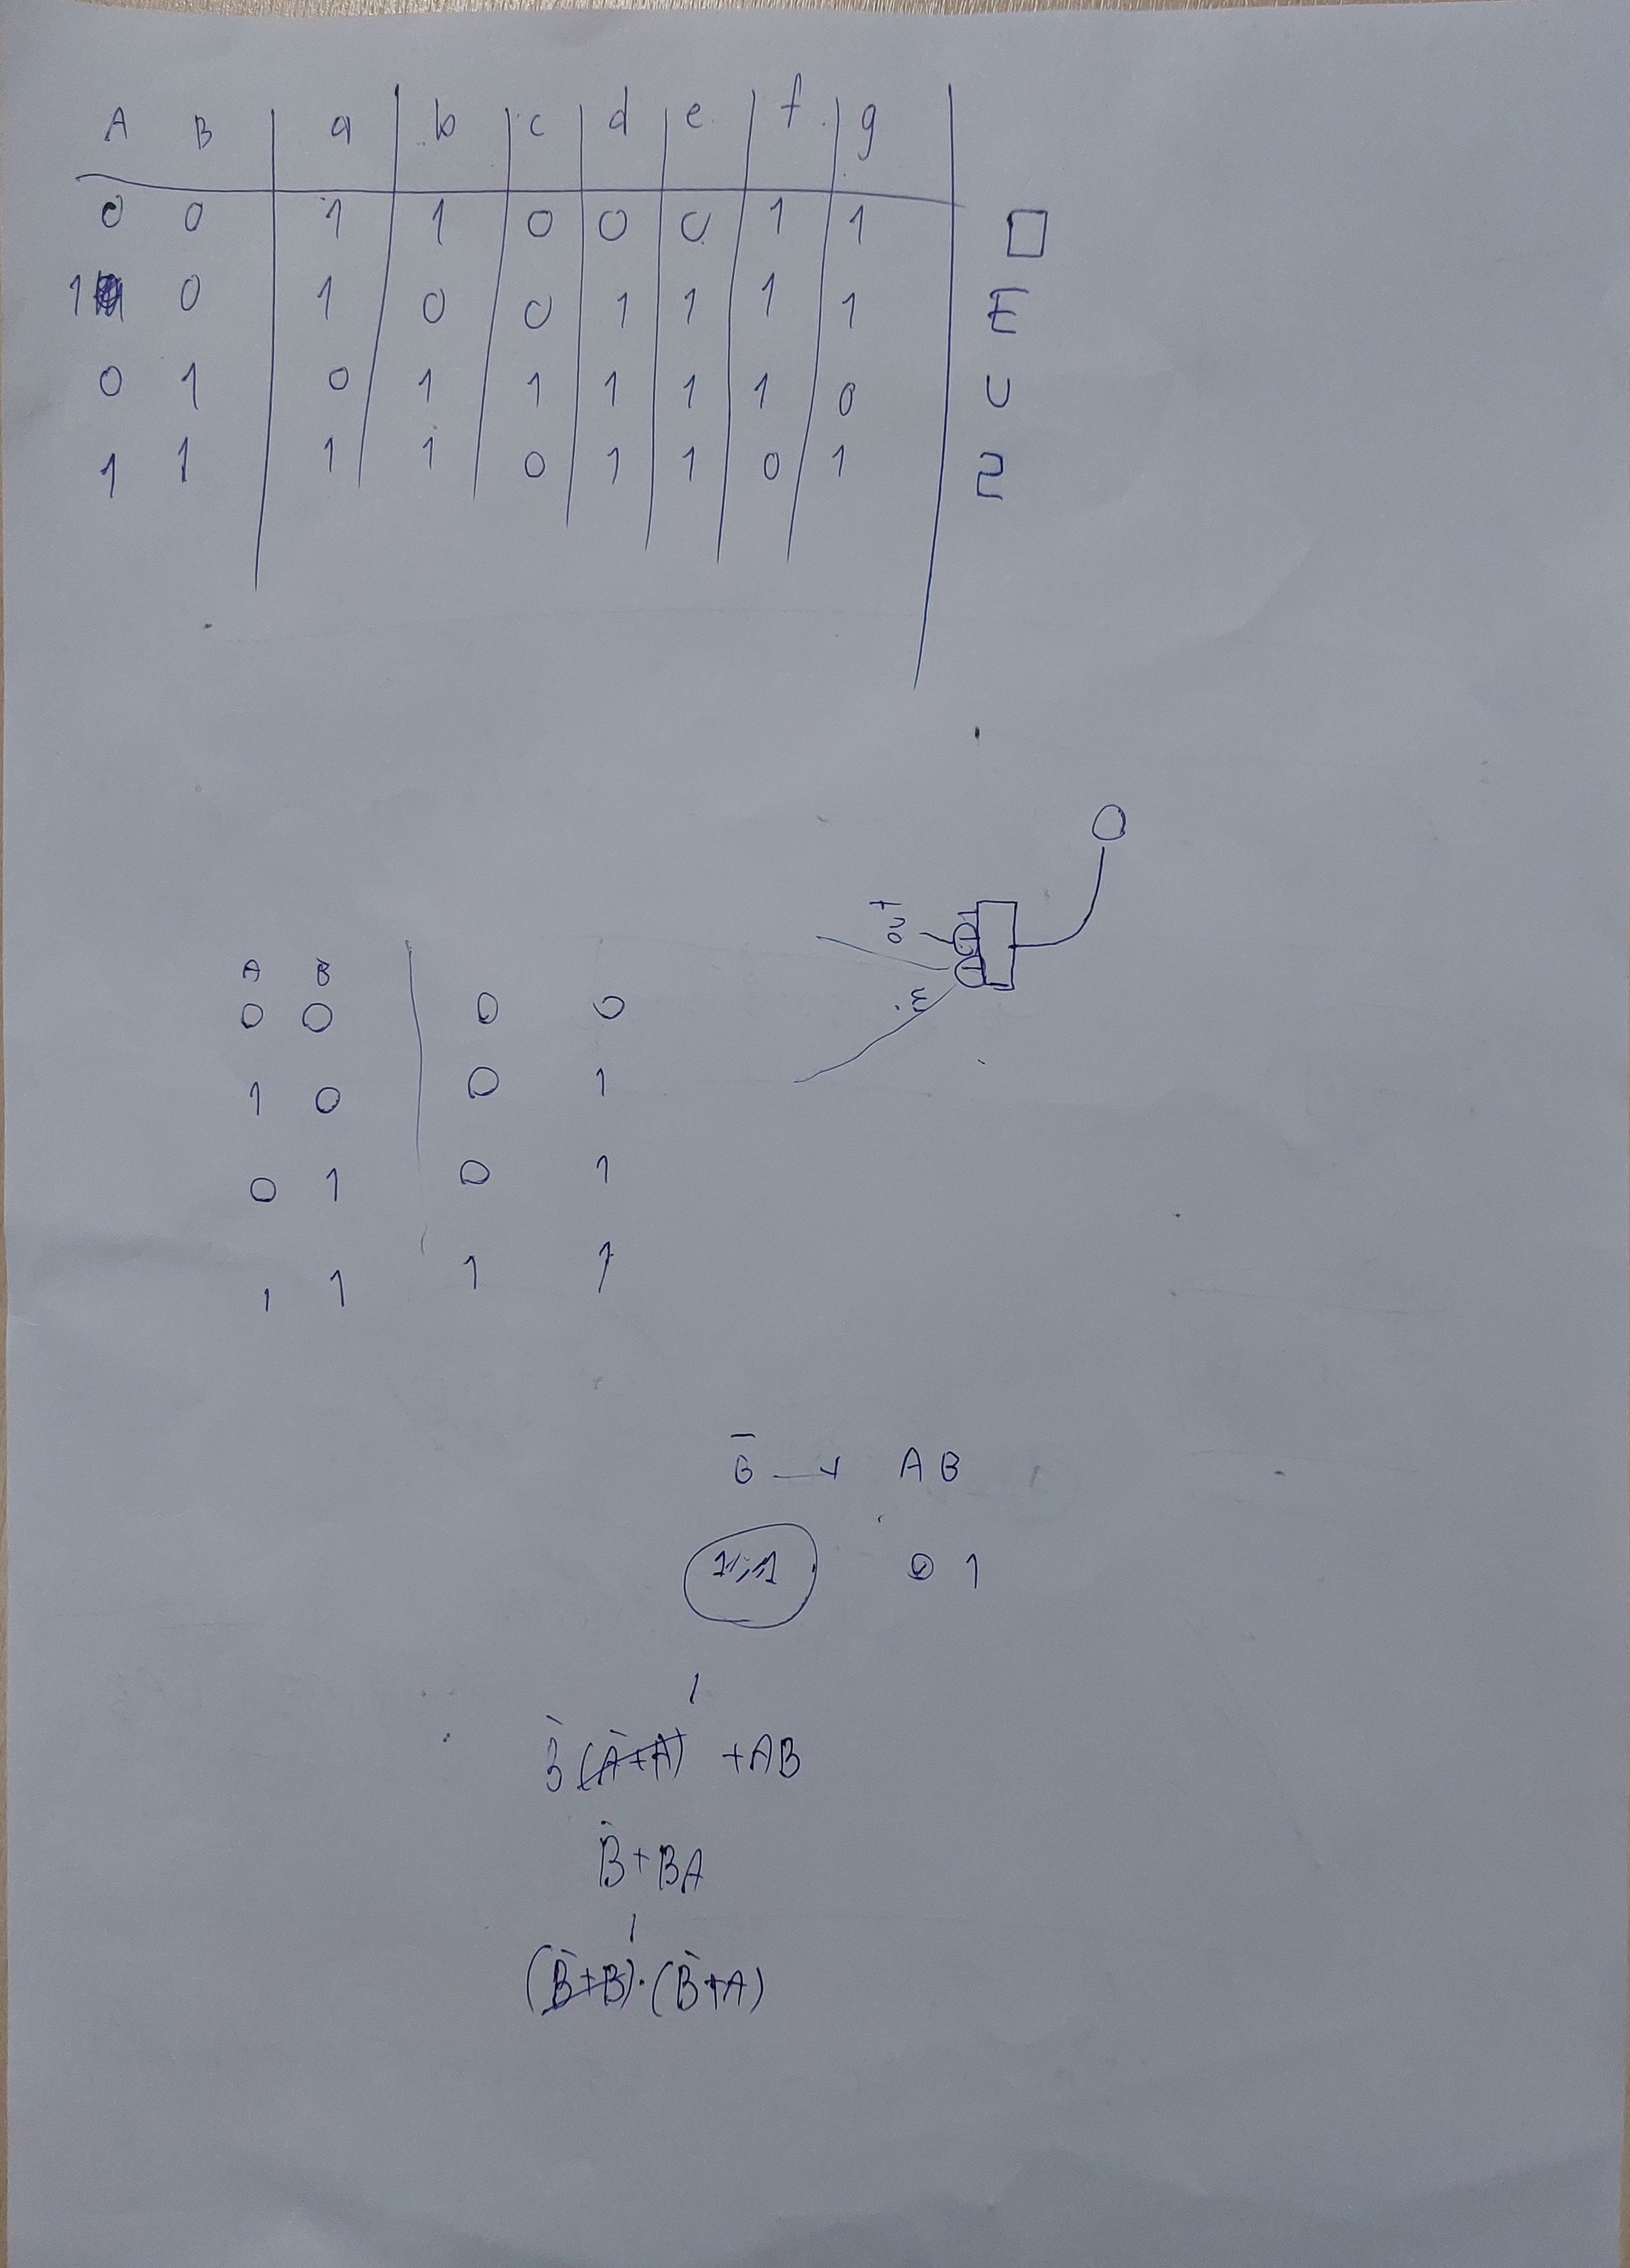 A B a b c d e f g
0 0 1 1 0 0 0 1 1
1 0 1 0 0 1 1 1 1 E
0 1 0 1 1 1 1 1 0 U
1 1 1 1 0 1 1 0 1 2
out
in
A B
0 0 0 0
1 0 0 1
0 1 0 1
1 1 1 1
A B
0 1
1
B̄(Ā+A) +AB
B̄+BA
1
(B̄+B)·(B̄+A)